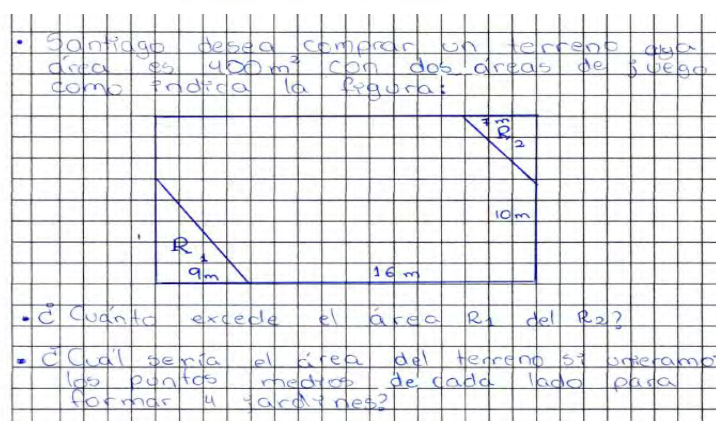 • Santiago desea comprar un terreno cuya
área es 400m² con dos áreas de juego
como indica la figura:
7 m
R2
10m
R1
9m
16 m
• ¿Cuánto excede el área R1 del R2?
• ¿Cuál sería el área del terreno si unieramo
los puntos medios de cada lado para
formar 4 jardines?